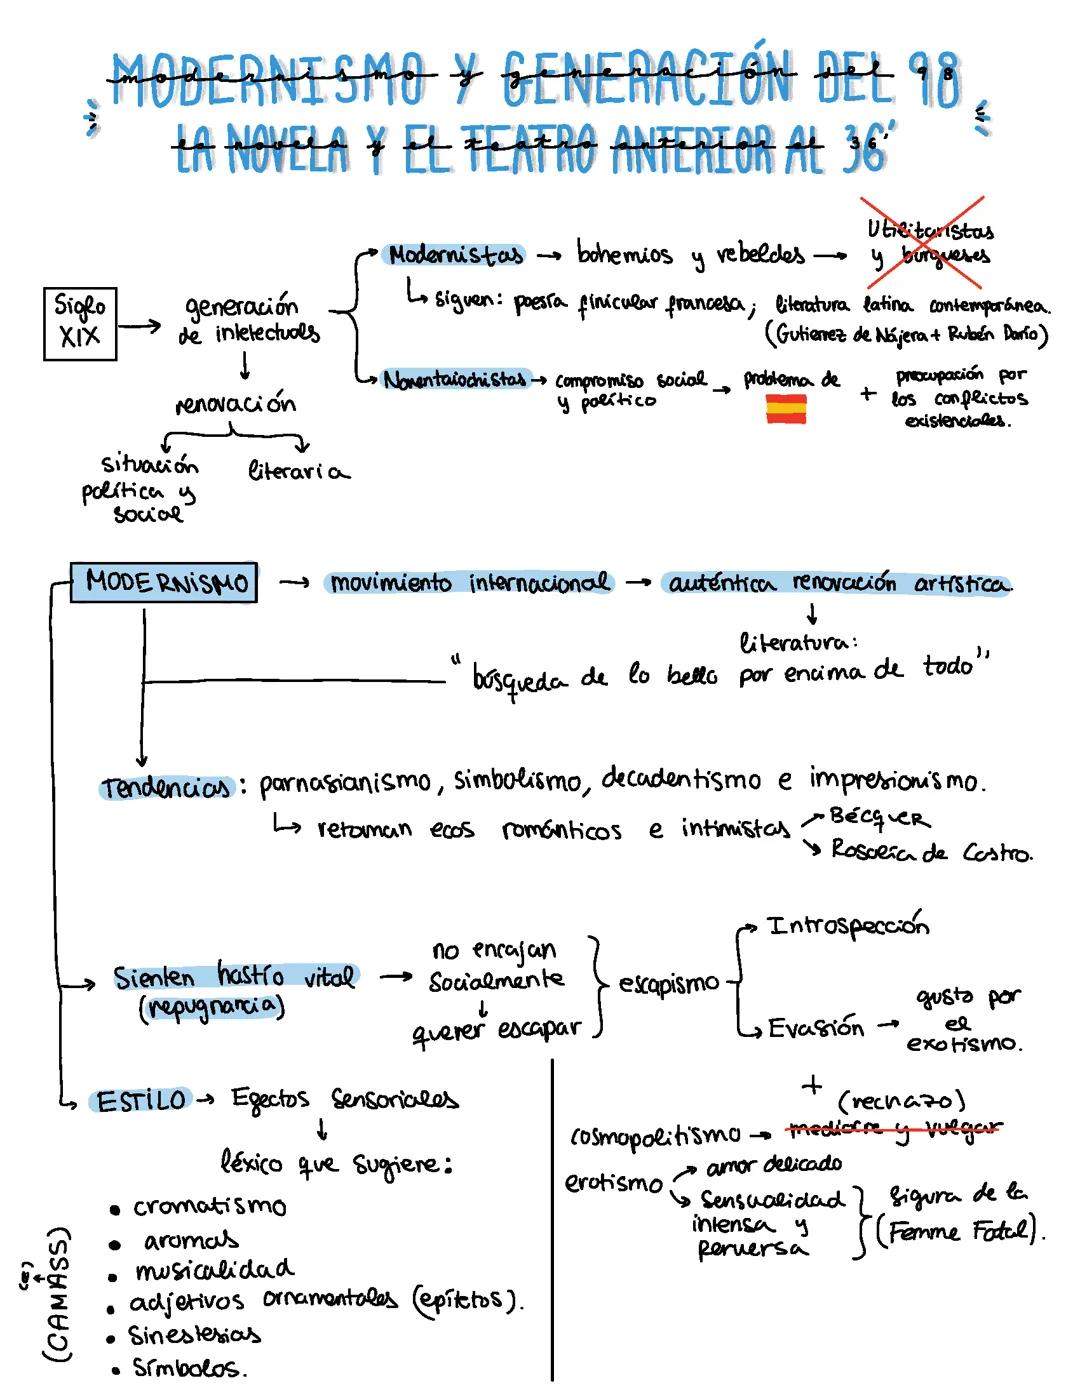 MODERNISMO Y GENERACIÓN DEL 98
modernismo y generación del 98
LA NOVELA Y EL TEATRO ANTERIOR AL 36'
la novela y el teatro anterior al 36
Siglo XIX → generación de intelectuals
↓
renovación
situación política y social
literaria
Modernistas → bohemios y rebeldes → Utilitaristas y burgueses
↳ siguen: poesía finicular francesa; literatura latina contemporánea.
(Gutierrez de Nájera + Rubén Darío)
Noventaiochistas → compromiso social y político → problema de + preocupación por los conflictos existenciales.
MODERNISMO → movimiento internacional → auténtica renovación artística.
↓
literatura:
"búsqueda de lo bello por encima de todo"
Tendencias: parnasianismo, simbolismo, decadentismo e impresionismo.
↳ retoman ecos románticos e intimistas
Bécquer
Rosalía de Castro.
Sienten hastío vital (repugnancia) → no encajan socialmente
↓
querer escapar
escapismo
Introspección
Evasión → gusto por el exotismo.
+
(rechazo)
cosmopolitismo → mediocre y vulgar
erotismo
amor delicado
sensualidad intensa y perversa
figura de la (Femme Fatal).
ESTILO → Efectos sensoriales
↓
léxico que sugiere:
• cromatismo
• aromas
• musicalidad
• adjetivos ornamentales (epítetos).
• sinestesias
• Símbolos.
(e)
(CAMASS)